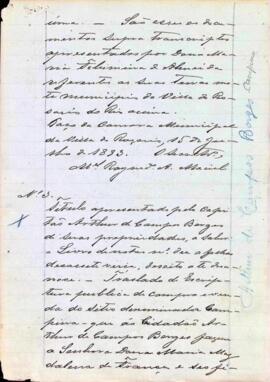 cima. — São esses os docu-
mentos supra transcriptos
apresentados por Dona Ma-
ria Philomena de Almeida
referente as suas terras
no municipio da Villa de Ro-
sario do Rio acima.
Paço da Camara Municipal
da Villa do Rosario, 15 de Ju-
nho de 1893. O Secretr.º,
M.el Raymd.º A. Maciel
Nº 3.
Titulo apresentado pelo Capi-
tão Arthur de Campos Borges
de suas propriedades, a sabe-
o Livro desta nº dez a folhas
dezesete verso, dezoito até de-
nove. — Traslado de Escrip-
tura publica de compra e ven-
da do sitio denominado Cam-
pina: que ao Cidadão Ar-
thur de Campos Borges fazem
a Senhora Dona Maria Ma-
dalena de França e seos fi-
Arthur de Campos Borges Campina